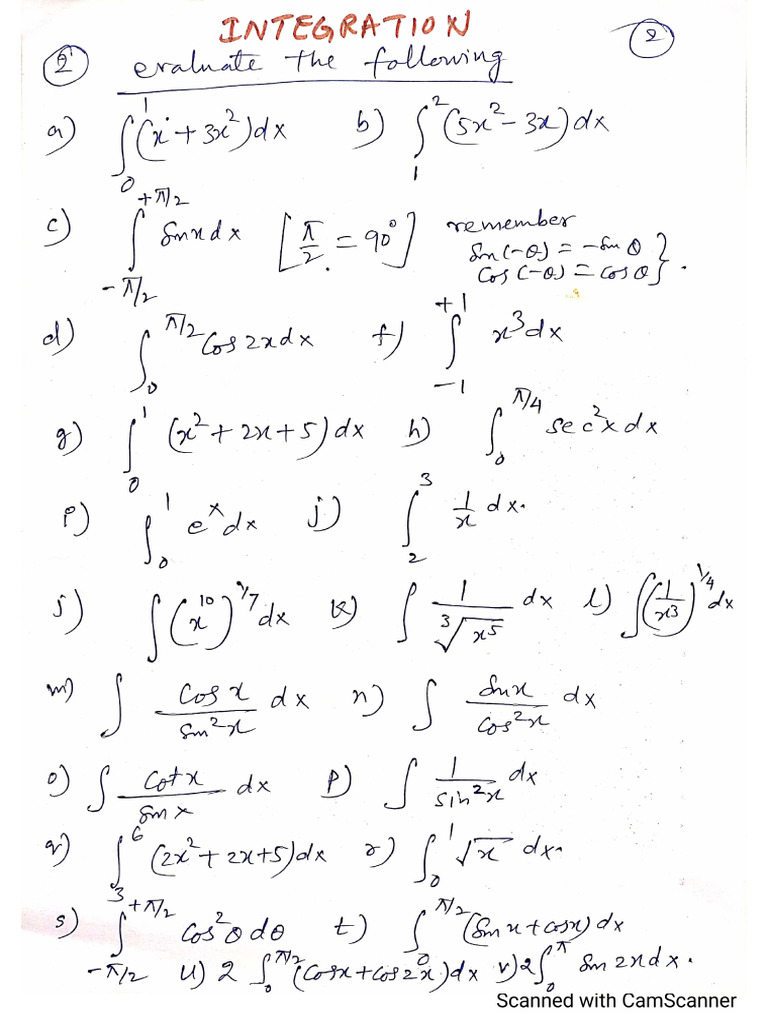 INTEGRATION
② evaluate the following ②
a) ∫₀¹ (x + 3x²) dx b) ∫₁² (5x² - 3x) dx
c) ∫_{-π/2}^{+π/2} sin x dx [π/2 = 90°] remember
sin(-θ) = -sin θ }
cos(-θ) = cos θ } .
d) ∫₀^{π/2} cos 2x dx f) ∫_{-1}^{+1} x³ dx
g) ∫₀¹ (x² + 2x + 5) dx h) ∫₀^{π/4} sec²x dx
i) ∫₀¹ eˣ dx j) ∫₂³ 1/x dx.
j) ∫ (x¹⁰)^{1/7} dx k) ∫ 1/∛(x⁵) dx l) ∫ (1/x³)^{1/4} dx
m) ∫ cos x / sin²x dx n) ∫ sin x / cos²x dx
o) ∫ cot x / sin x dx p) ∫ 1 / sin²x dx
q) ∫₃⁶ (2x² + 2x + 5) dx r) ∫₀¹ √x dx.
s) ∫_{-π/2}^{+π/2} cos²θ dθ t) ∫₀^{π/2} (sin x + cos x) dx
u) 2 ∫₀^{π/2} (cos x + cos 2x) dx v) 2 ∫₀^π sin 2x dx.
Scanned with CamScanner